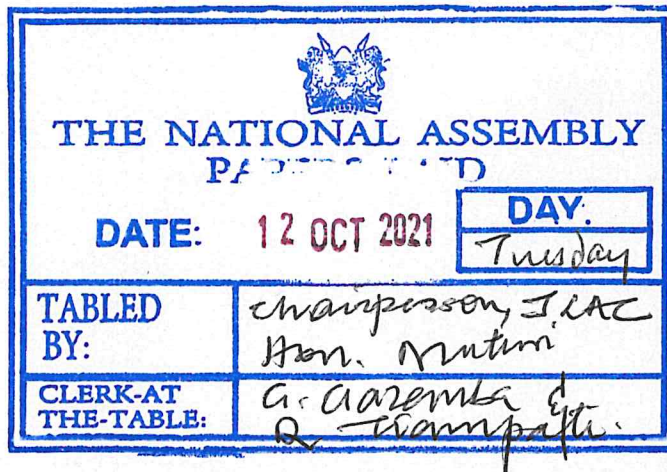 THE NATIONAL ASSEMBLY
DATE: 12 OCT 2021
DAY.
Tuesday
TABLED BY:
chairperson, JLAC
Hon. Mutimi
CLERK-AT THE-TABLE:
G.